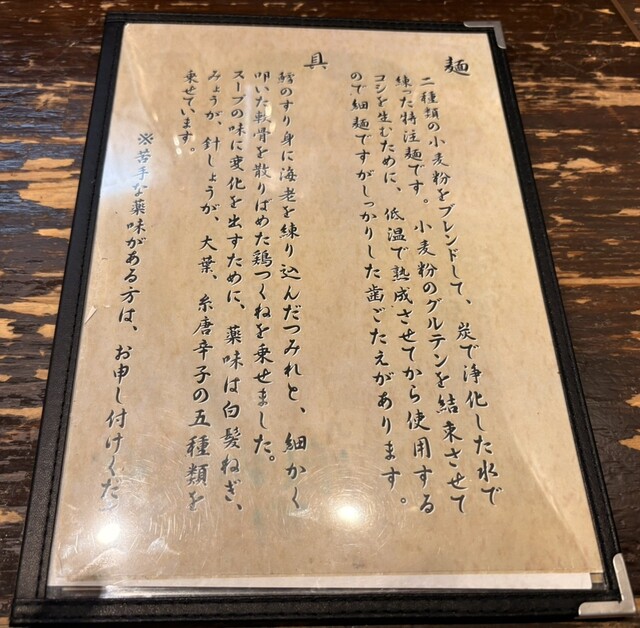 麺
二種類の小麦粉をブレンドして、炭で浄化した水で
練った特注麺です。小麦粉のグルテンを結束させて
コシを生むために、低温で熟成させてから使用する
ので細麺ですがしっかりした歯ごたえがあります。
具
鱈のすり身に海老を練り込んだつみれと、細かく
叩いた軟骨を散りばめた鶏つくねを乗せました。
スープの味に変化を出すために、薬味は白髪ねぎ、
みょうが、針しょうが、大葉、糸唐辛子の五種類を
乗せています。
※苦手な薬味がある方は、お申し付けくだ